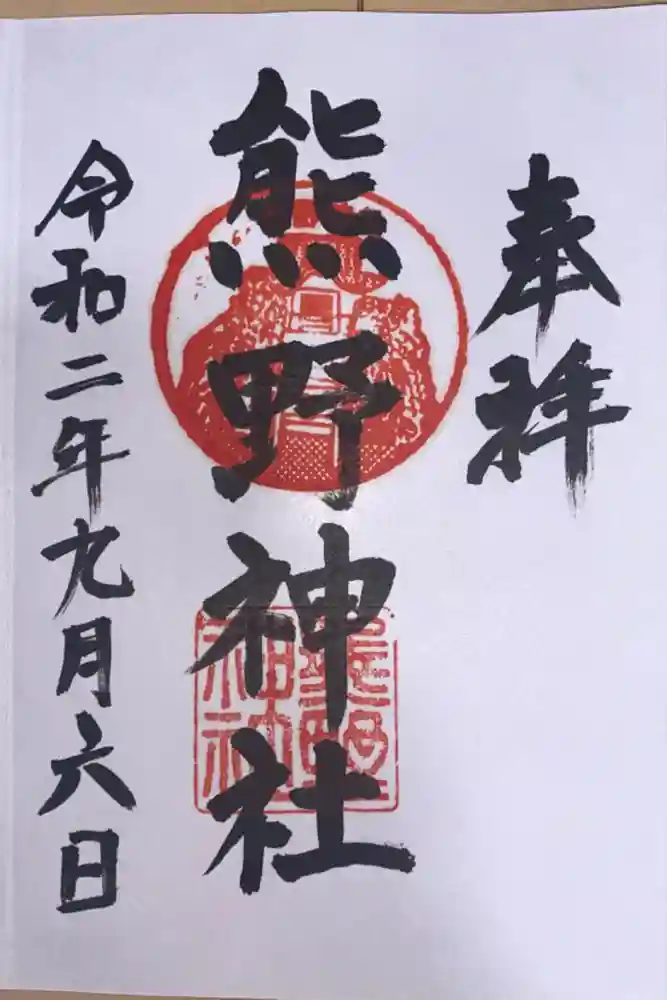 奉拝
熊野神社
令和二年九月六日
熊野
神社